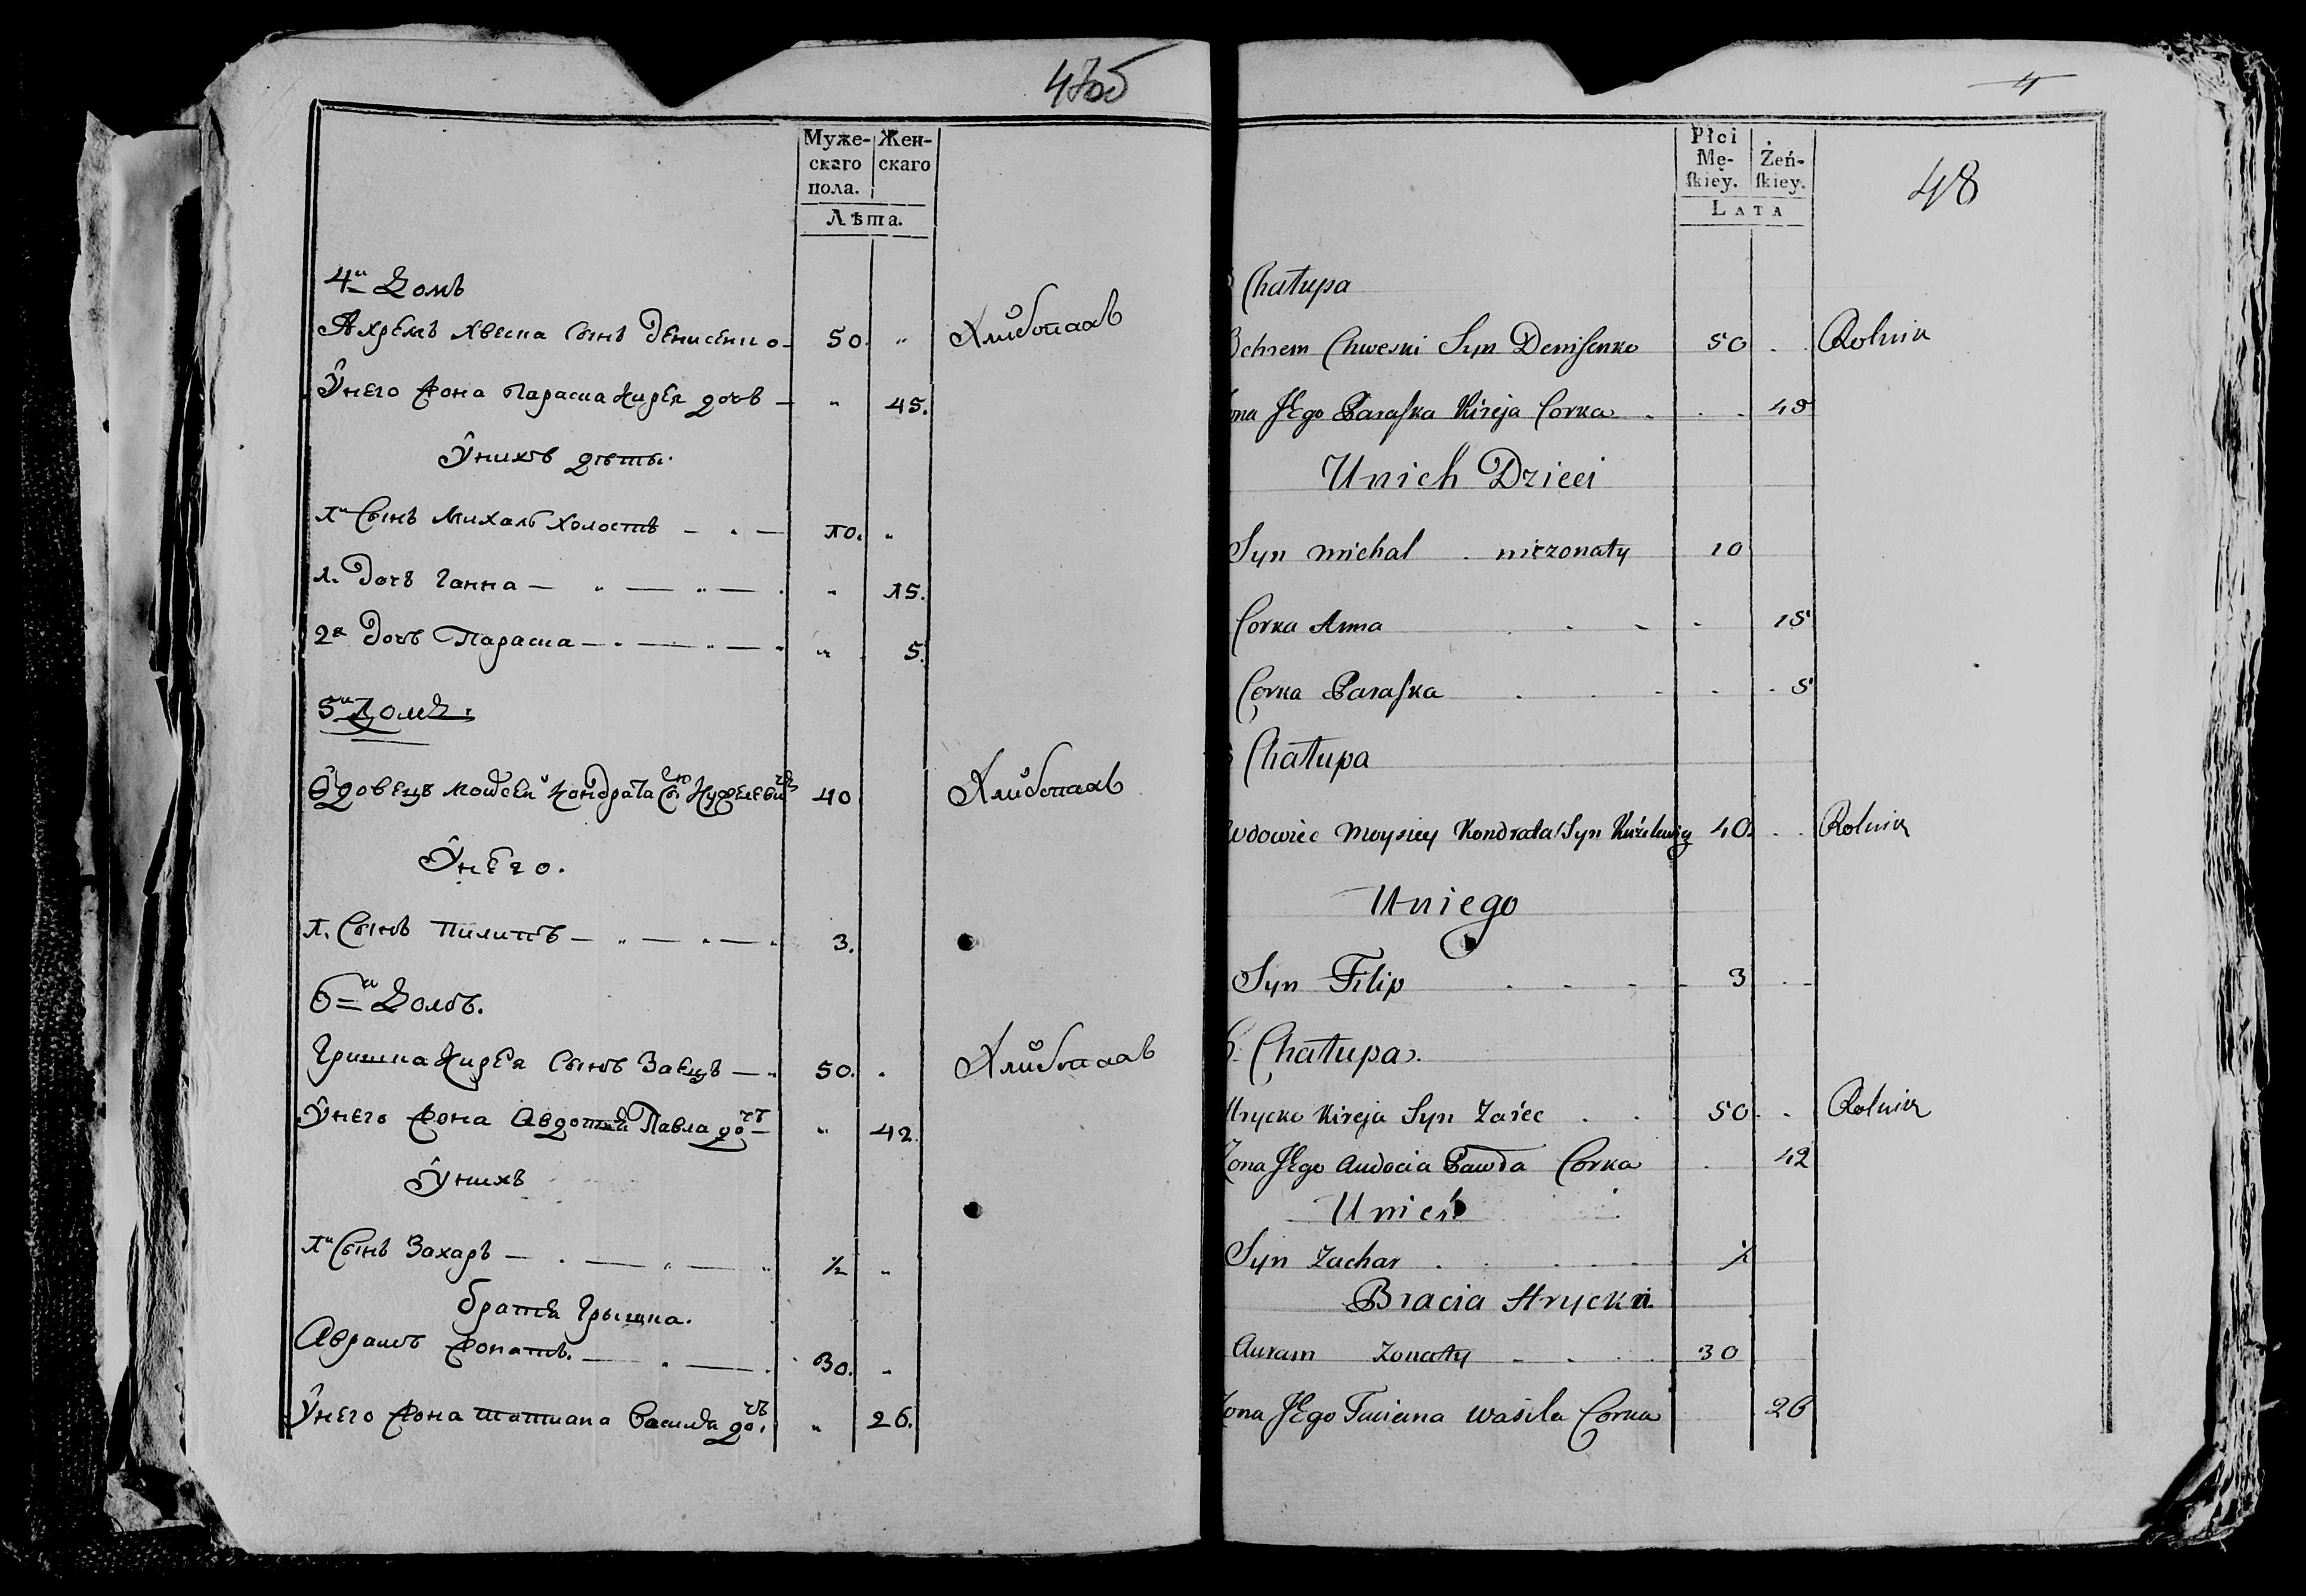 47об
Муже-
скаго
пола.
Жен-
скаго
Лѣта.
4й Домъ
Ахремъ Хвеська Сынъ Денисенко 50. " Хлибопахъ
Унего жона Параска Кирея дочъ — " 45.
Унихъ дѣты.
1й Сынъ Михалъ холостъ — . — 10. "
1. Дочъ Ганна — " — " — . " 15.
2я Дочъ Параска — . — " — " " 5.
5й Домъ.
Вдовецъ Мойсей Кондрата 40 Хлибопахъ
Унего.
1. Сынъ Пилипъ — " — " — " 3.
6й Домъ.
Гришка Кирея Сынъ Заецъ — " 50. . Хлибопахъ
Унего жона Авдотия Павла дочъ — " 42.
Унихъ
1й Сынъ Захаръ — . — " — " ½ "
братья Грышка.
Аврамъ жонатъ. — " — . 30. "
Унего жона Татиана Василя доч. " 26.
4
48
Płci
Mę-
ſkiey.
Żeń-
ſkiey.
Lata
Chałupa
Chweski Syn Deniſenko 50 . Rolnik
Jego Paraſka Kireja Corka . . . 45
Unich Dzieci
Syn Michal . nieżonaty 10
Corka Anna . . - - 15
Corka Paraſka . . - . . 5
Chałupa
Wdowiec Moysiey Kondrata Syn 40. . . Rolnik
Uniego
Syn Filip . - - - 3 . -
6. Chałupa.
Hrycko Kireja Syn Zaiec . . 50. . Rolnik
Żona Jego Audocia Pawła Corka . 42
Unich
Syn Zachar . . . . - ½
Bracia Hrycka
Auram żonaty - . . . 30
Żona Jego Wasila Corka 26